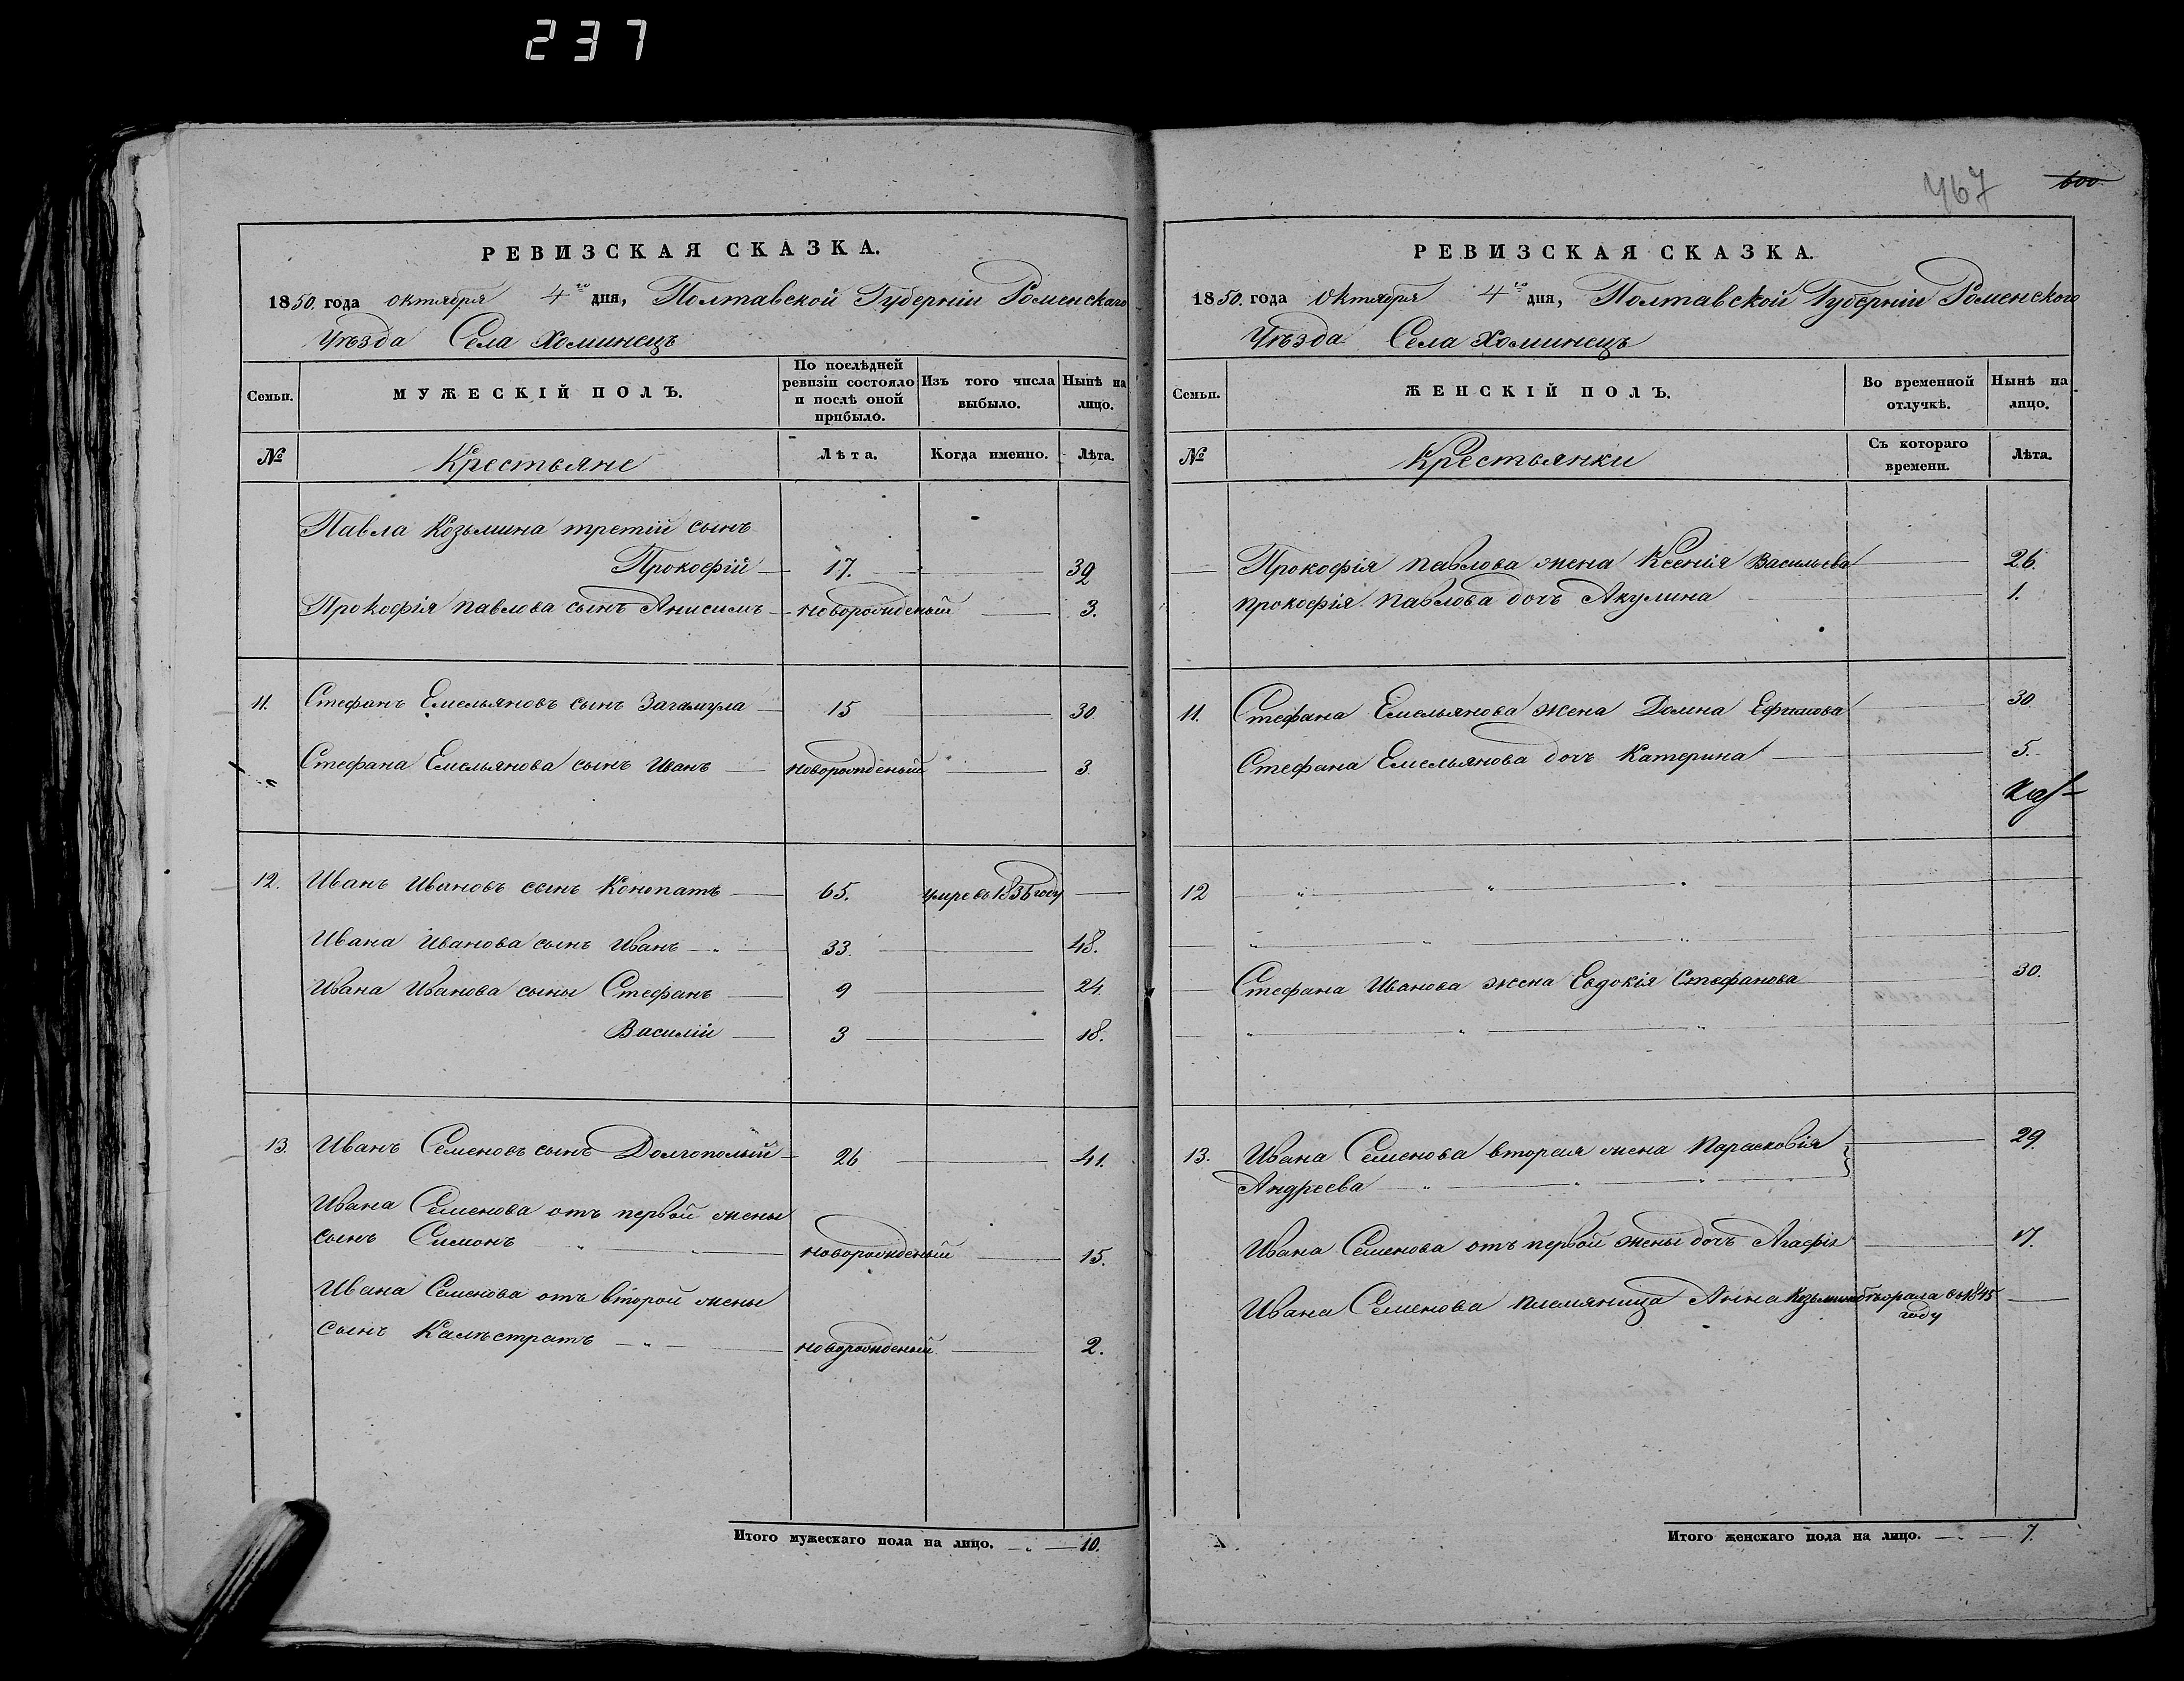 237
РЕВИЗСКАЯ СКАЗКА.
1850. года октября 4го дня, Полтавской Губерніи Роменскаго
Уѣзда Села Хоминецъ
Семьи.
МУЖЕСКІЙ ПОЛЪ.
По послѣдней
ревизіи состояло
и послѣ оной
прибыло.
Изъ того числа
выбыло.
Нынѣ на
лицо.
№
Крестьяне
Лѣта.
Когда именно.
Лѣта.
Павла Козьмина третій сынъ
Прокофій 17. 32
Прокофія Павлова сынъ Анисимъ новорожденый 3.
11. Стефанъ Емельяновъ сынъ Загамула 15 30
Стефана Емельянова сынъ Иванъ новорожденый 3.
12. Иванъ Ивановъ сынъ Конопатъ 65. умре въ 1836 году
Ивана Иванова сынъ Иванъ 33. 48.
Ивана Иванова сыны Стефанъ 9 24.
Василій 3 18.
13. Иванъ Семеновъ сынъ Долгополый 26 41.
Ивана Семенова отъ первой жены
сынъ Симонъ новорожденый 15.
Ивана Семенова отъ второй жены
сынъ Калѣстратъ новорожденый 2.
Итого мужескаго пола на лицо. 10.
467 600
РЕВИЗСКАЯ СКАЗКА.
1850. года Октября 4го дня, Полтавской Губерніи Роменского
Уѣзда Села Хоминецъ
Семьи.
ЖЕНСКІЙ ПОЛЪ.
Во временной
отлучкѣ.
Нынѣ на
лицо.
№
Крестьянки
Съ котораго
времени.
Лѣта.
Прокофія Павлова жена Ксенія Васильева 26.
прокофія Павлова дочь Акулина 1.
11. Стефана Емельянова жена Домна Ефимова 30
Стефана Емельянова дочь Катерина 5.
12
Стефана Иванова жена Евдокія Стефанова 30.
13. Ивана Семенова вторая жена Парасковія 29.
Андреева
Ивана Семенова отъ первой жены дочь Агафія 17.
Ивана Семенова племяница Анна Козьмина 1845
году
Итого женскаго пола на лицо. 7.